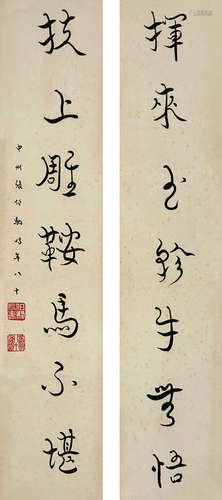 揮來玉軫牛無悟
扶上雕鞍馬不堪
中州張伯駒時年八十